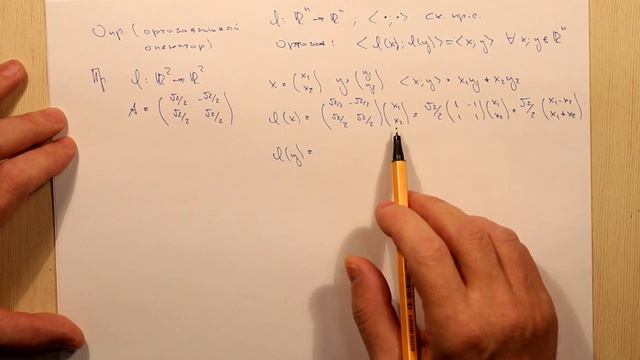 Опр. (ортогональный оператор) l: ℝⁿ → ℝⁿ; <·;·> ск. пр-е.
Ортогон: <l(x); l(y)> = <x; y> ∀ x; y ∈ ℝⁿ
Пр. l: ℝ² → ℝ² x = (x₁ x₂) y = (y₁ y₂) <x; y> = x₁y₁ + x₂y₂
A = (√2/2 -√2/2 √2/2 √2/2) l(x) = (√2/2 -√2/2 √2/2 √2/2)(x₁ x₂) = √2/2 (1 -1 1 1)(x₁ x₂) = √2/2 (x₁-x₂ x₁+x₂)
l(y) =